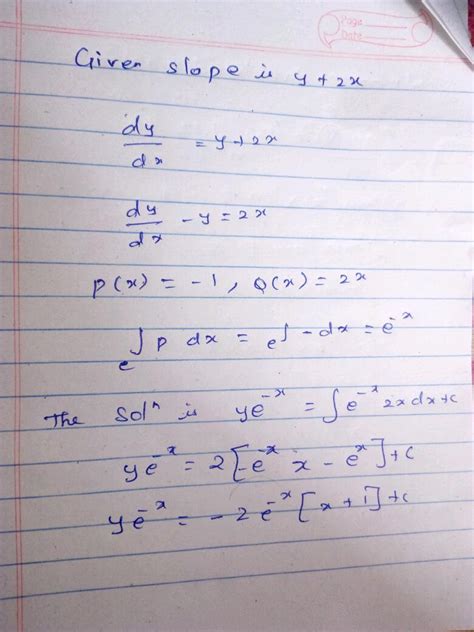 Page
Date
Given slope is y + 2x
dy/dx = y + 2x
dy/dx - y = 2x
P(x) = -1, Q(x) = 2x
e^∫p dx = e^∫-dx = e^-x
The Solⁿ is ye^-x = ∫e^-x 2x dx + c
ye^-x = 2[-e^-x x - e^-x] + c
ye^-x = -2e^-x [x + 1] + c